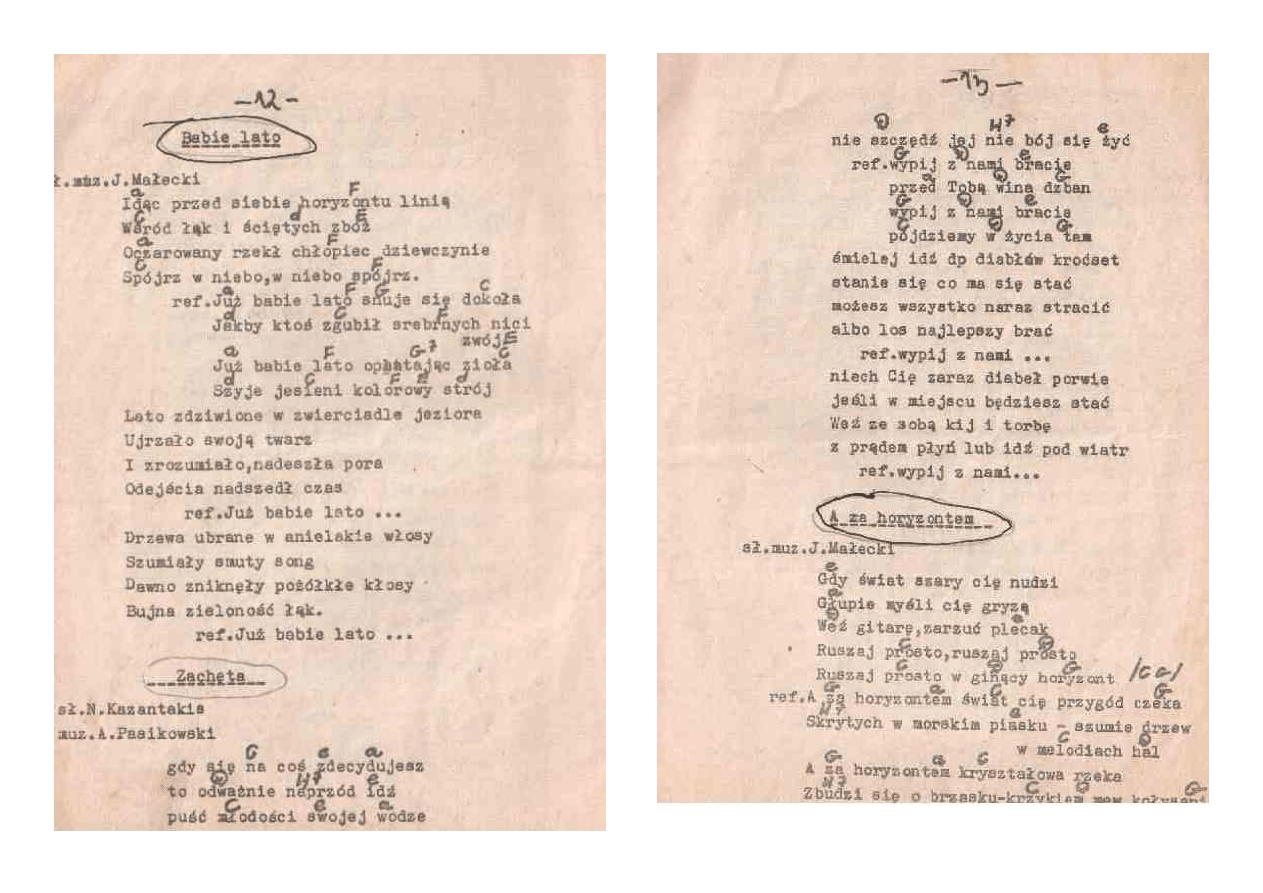 -12-
Babie lato
ł.muz.J.Małecki
a F
Idąc przed siebie horyzontu linią
G d E
Wśród łąk i ściętych zbóż
a F
Oczarowany rzekł chłopiec dziewczynie
G F
Spójrz w niebo,w niebo spójrz.
a F G C
ref.Już babie lato snuje się dokoła
d C F
Jakby ktoś zgubił srebrnych nici
zwój E
a F G7 C
Już babie lato oplątając zioła
d C F E d
Szyje jesieni kolorowy strój
Lato zdziwione w zwierciadle jeziora
Ujrzało swoją twarz
I zrozumiało,nadeszła pora
Odejścia nadszedł czas
ref.Już babie lato ...
Drzewa ubrane w anielskie włosy
Szumiały smuty song
Dawno zniknęły pożółkłe kłosy
Bujna zieloność łąk.
ref.Już babie lato ...
Zachęta
sł.N.Kazantakis
muz.A.Pasikowski
G e a
gdy się na coś zdecydujesz
D H7 e
to odważnie naprzód idź
C e a
puść młodości swojej wodze
-13-
D H7 e
nie szczędź jej nie bój się żyć
G D e
ref.wypij z nami bracie
a D G
przed Tobą wina dzban
G D e
wypij z nami bracie
C D G
pójdziemy w życia tan
śmielej idź dp diabłów kroćset
stanie się co ma się stać
możesz wszystko naraz stracić
albo los najlepszy brać
ref.wypij z nami ...
niech Cię zaraz diabeł porwie
jeśli w miejscu będziesz stać
Weź ze sobą kij i torbę
z prądem płyń lub idź pod wiatr
ref.wypij z nami...
A za horyzontem
sł.muz.J.Małecki
e
Gdy świat szary cię nudzi
a
Głupie myśli cię gryzą
D e
Weź gitarę,zarzuć plecak
C D
Ruszaj prosto,ruszaj prosto
C D G
Ruszaj prosto w ginący horyzont /CG/
G a C G
ref.A za horyzontem świat cię przygód czeka
H7 a
Skrytych w morskim piasku - szumie drzew
C D
w melodiach hal
G a C
A za horyzontem kryształowa rzeka
H7 C D G
Zbudzi się o brzasku-krzykiem mew